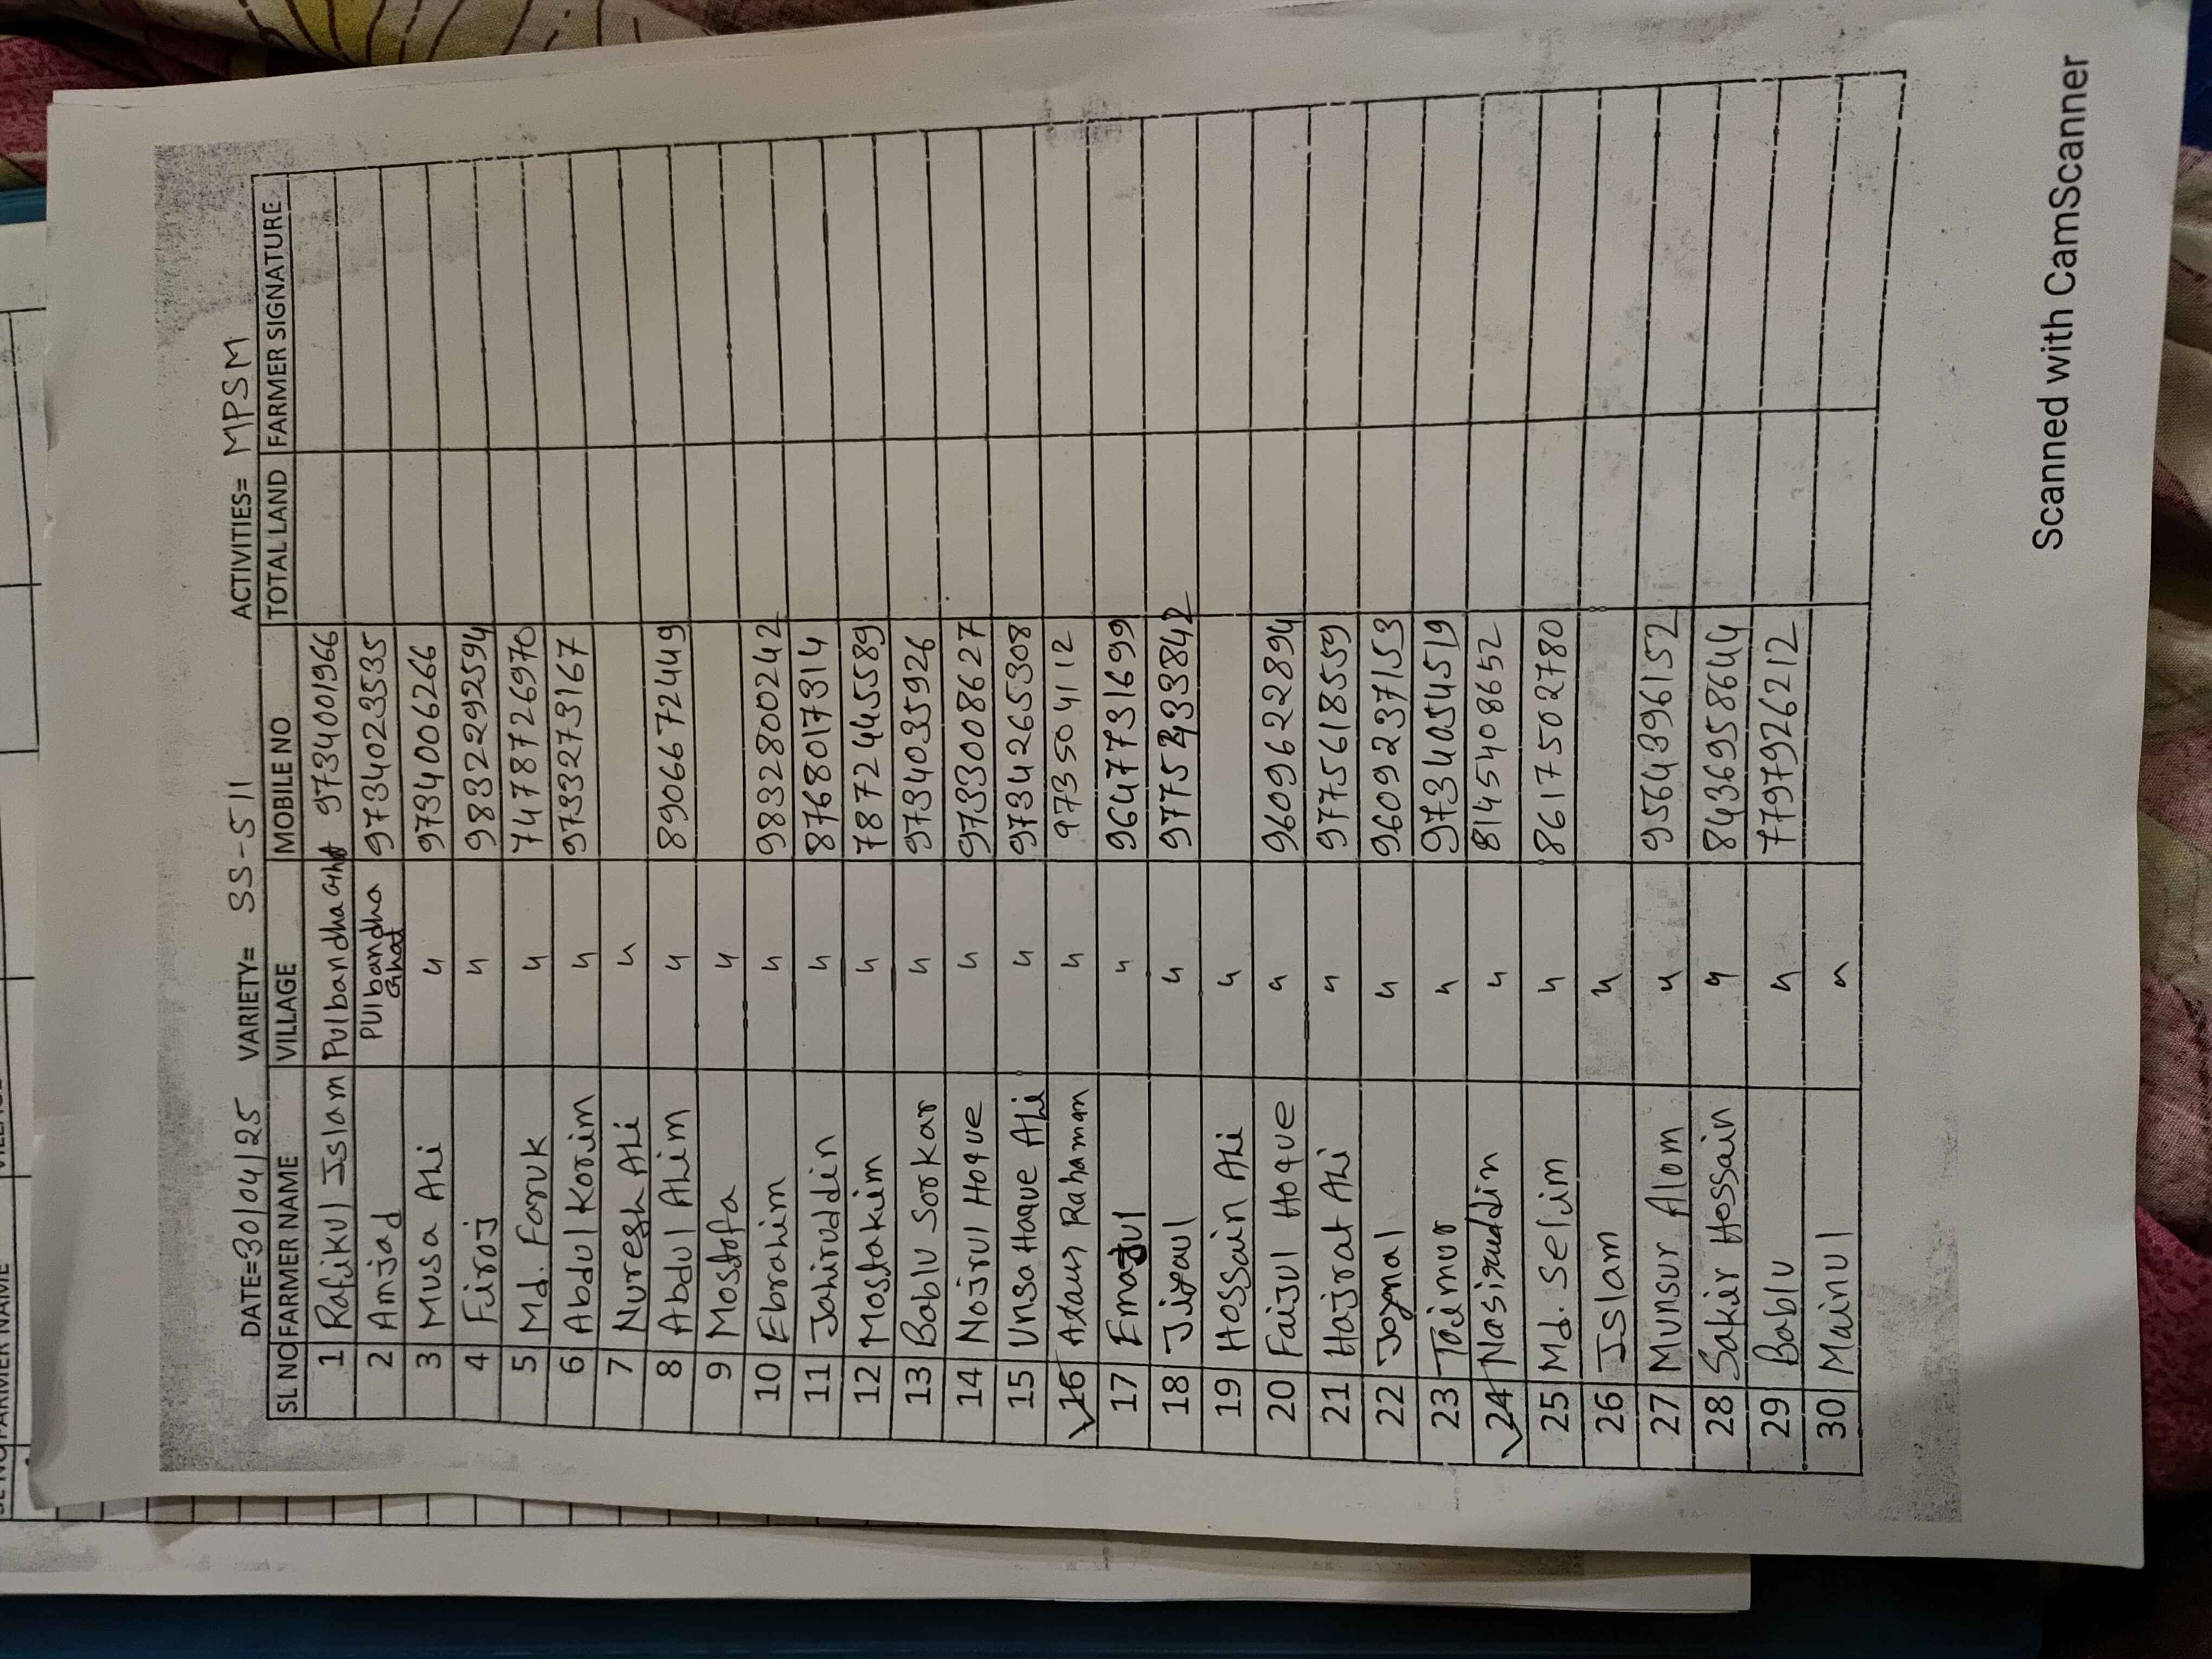 DATE=30/04/25 VARIETY= SS-511 ACTIVITIES= MPSM
SL NO FARMER NAME VILLAGE MOBILE NO TOTAL LAND FARMER SIGNATURE
1 Rafikul Islam Pulbandha Ghat 9734001966
2 Amjad Pulbandha Ghat 9734023535
3 Musa Ali " 9734006266
4 Firoj " 9832292594
5 Md. Faruk " 7478726970
6 Abdul Korim " 9733273167
7 Nuresh Ali "
8 Abdul Alim " 8906672449
9 Mostofa "
10 Ebrahim " 9832800242
11 Jahiruddin " 8768017314
12 Mostakim " 7872445589
13 Bablu Sorkar " 9734035926
14 Nojrul Hoque " 9733008627
15 Unsa Haque Ali " 9734265308
16 Ataur Rahaman " 9735041112
17 Emajul " 9647731699
18 Jiyaul "
19 Hossain Ali "
20 Faijul Hoque " 9609622894
21 Hajrat Ali " 9775618559
22 Joynal " 9609237153
23 Taimur " 9734054519
24 Nasiruddin " 8145408652
25 Md. Selim " 8617502780
26 Islam "
27 Munsur Alom " 9564396152
28 Sakir Hossain " 8436958644
29 Bablu " 7797926212
30 Mainul "
Scanned with CamScanner